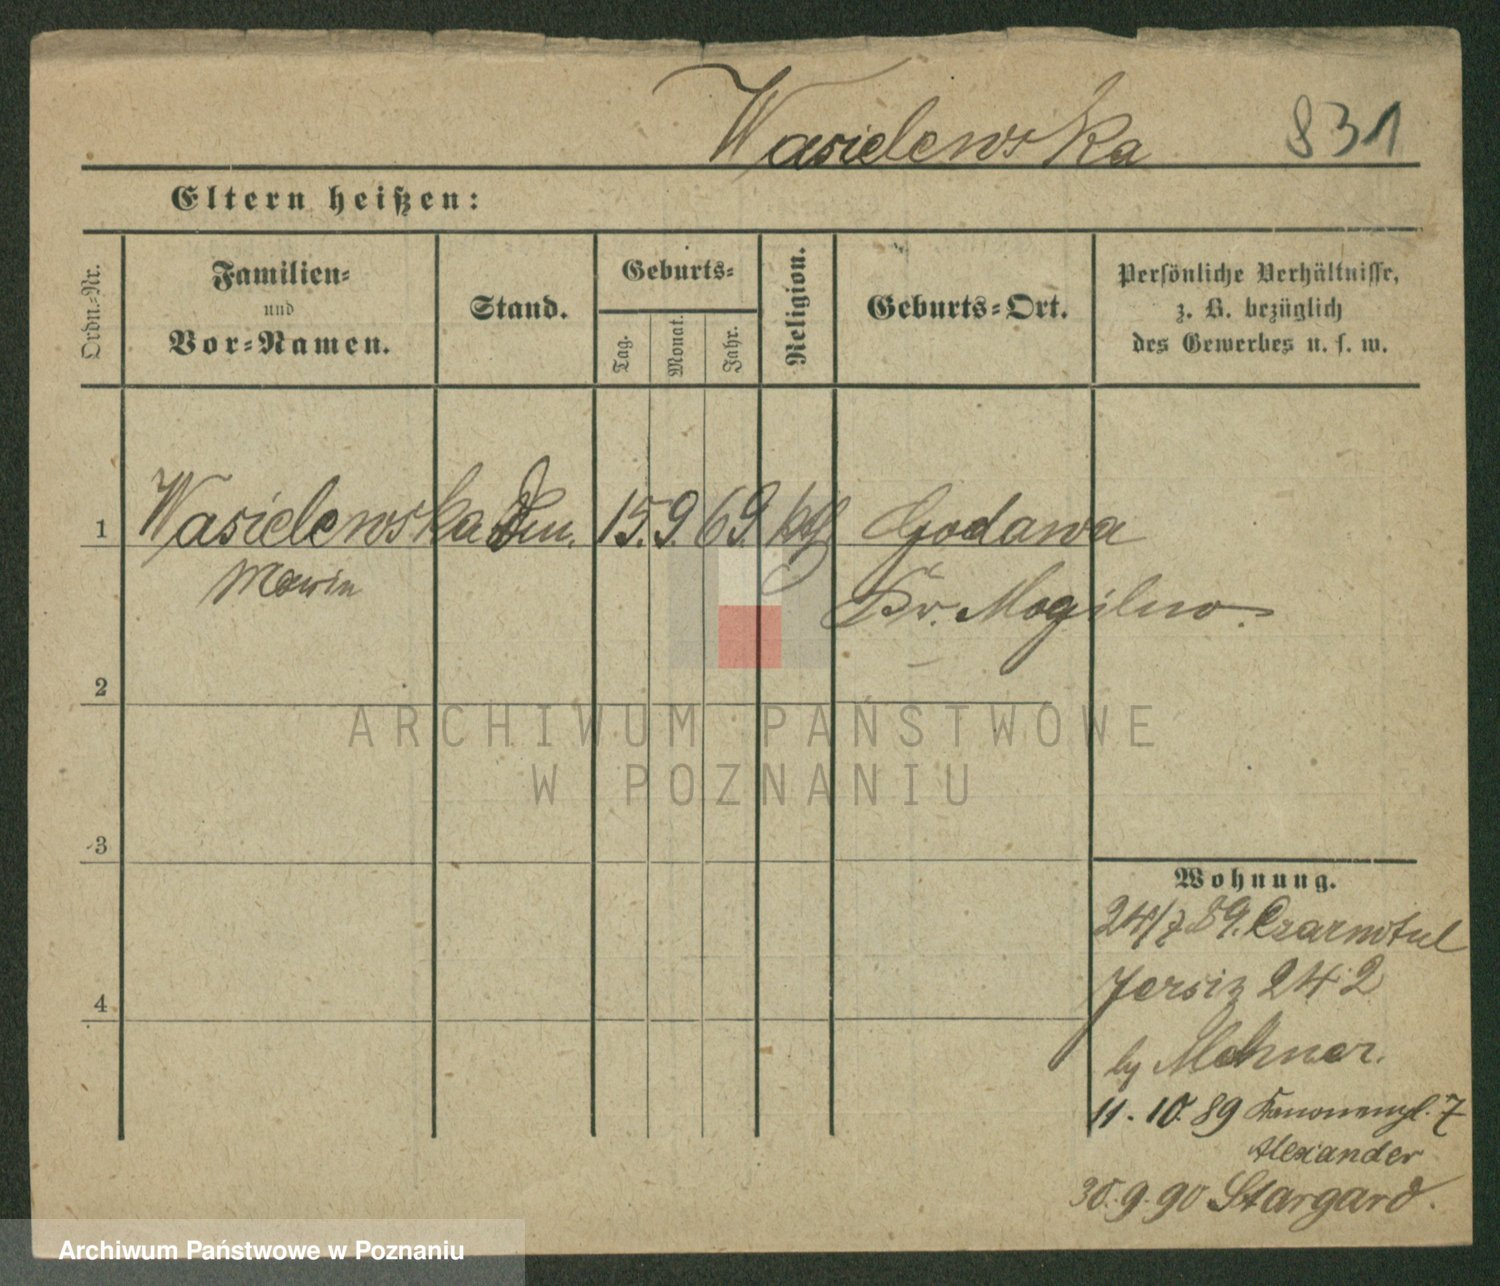 Wasielewska 831
Eltern heißen:
Ordn.=Nr.
Familien=
und
Vor=Namen.
Stand.
Geburts=
Tag.
Monat.
Jahr.
Religion.
Geburts=Ort.
Persönliche Verhältnisse,
z. B. bezüglich
des Gewerbes u. s. w.
1 Wasielewska 15. 9. 69. kth Godawa
Kr. Mogilno.
2
ARCHIWUM PAŃSTWOWE
W POZNANIU
3
4
Wohnung.
24/7 89. Czarnotul
Jersiz 242
by
11. 10. 89 Kanonenpl. 7
Alexander
30. 9. 90 Stargard.
Archiwum Państwowe w Poznaniu